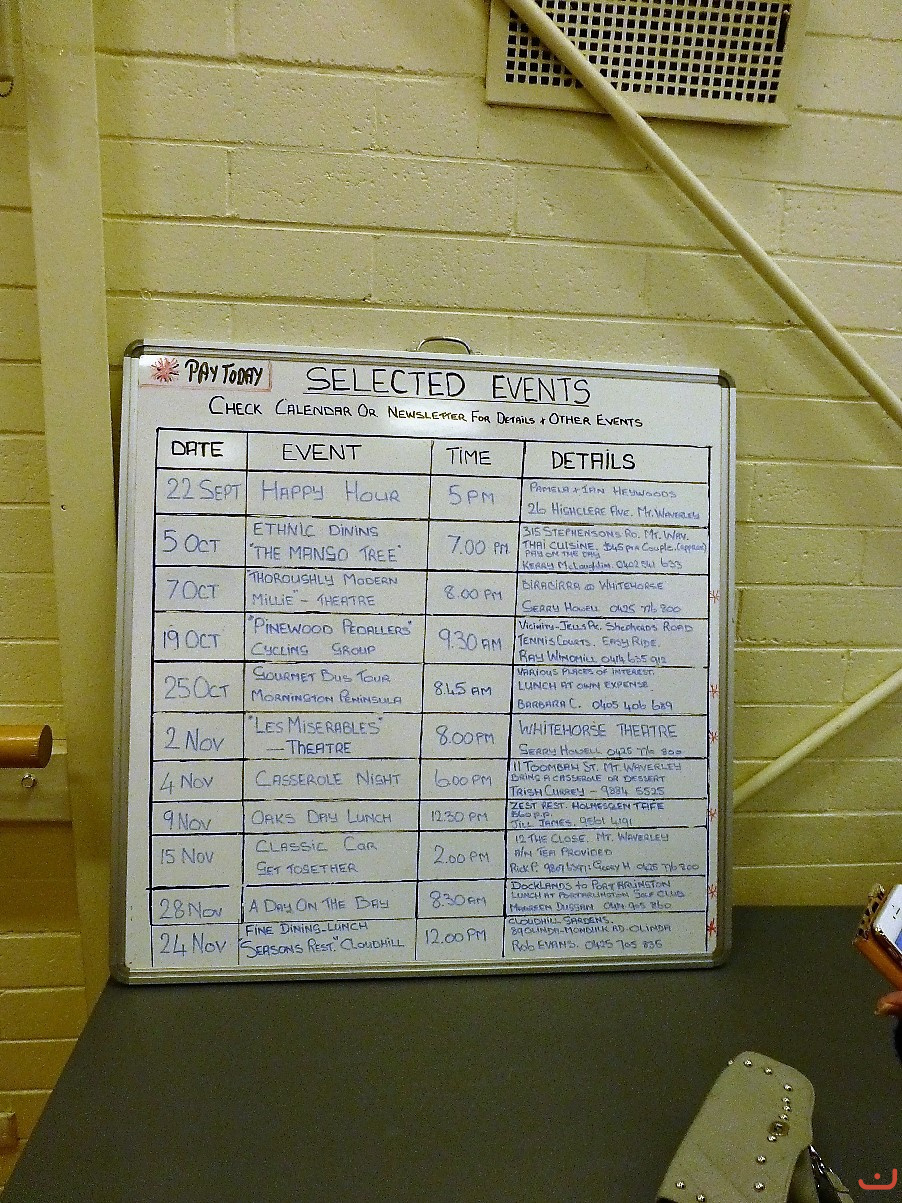 * PAY TODAY
SELECTED EVENTS
CHECK CALENDAR OR NEWSLETTER FOR DETAILS & OTHER EVENTS
DATE EVENT TIME DETAILS
22 SEPT HAPPY HOUR 5 PM PAMELA & IAN HEYWOODS
26 HIGHCLERE AVE. MT. WAVERLEY
5 OCT ETHNIC DINING 7.00 PM 315 STEPHENSONS RD. MT. WAV.
"THE MANGO TREE" THAI CUISINE. $45 PER COUPLE. (APPROX)
PAY ON THE DAY
KERRY MCLAUGHLIN. 0402 541 633
7 OCT THOROUGHLY MODERN 8.00 PM BIRABIRRA @ WHITEHORSE
MILLIE" - THEATRE GERRY HOWELL 0425 776 800 *
19 OCT "PINEWOOD PEDALLERS" 9.30 AM VICINITY - JELLS PK. SHEPHERDS ROAD
CYCLING GROUP TENNIS COURTS. EASY RIDE.
RAY WINDMILL 0414 635 912
25 OCT GOURMET BUS TOUR 8.45 AM VARIOUS PLACES OF INTEREST.
MORNINGTON PENINSULA LUNCH AT OWN EXPENSE. *
BARBARA C. 0405 406 689
2 NOV "LES MISERABLES" 8.00 PM WHITEHORSE THEATRE *
— THEATRE GERRY HOWELL 0425 776 800
4 NOV CASSEROLE NIGHT 6.00 PM 11 TOOMBAH ST. MT. WAVERLEY
BRING A CASSEROLE OR DESSERT
TRISH CURREY - 9884 5525
9 NOV OAKS DAY LUNCH 12.30 PM ZEST REST. HOLMESGLEN TAFE
$60 P.P. *
JILL JAMES. 9561 4191
15 NOV CLASSIC CAR 2.00 PM 12 THE CLOSE. MT. WAVERLEY
GET TOGETHER A/N TEA PROVIDED
RICK P. GERRY H 0425 776 800
28 NOV A DAY ON THE BAY 8.30 AM DOCKLANDS TO PORT ARLINGTON
LUNCH AT PORTARLINGTON GOLF CLUB *
MAUREEN DUGGAN 0414 905 860
24 NOV FINE DINING - LUNCH 12.00 PM CLOUDHILL GARDENS.
"SEASONS REST." CLOUDHILL 89 OLINDA-MONBULK RD. OLINDA *
ROB EVANS. 0425 705 835